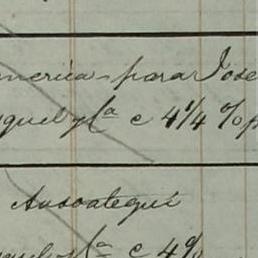 merica para Jose
quel y Cª c 4¼ % p
Ausoategui
c 4%